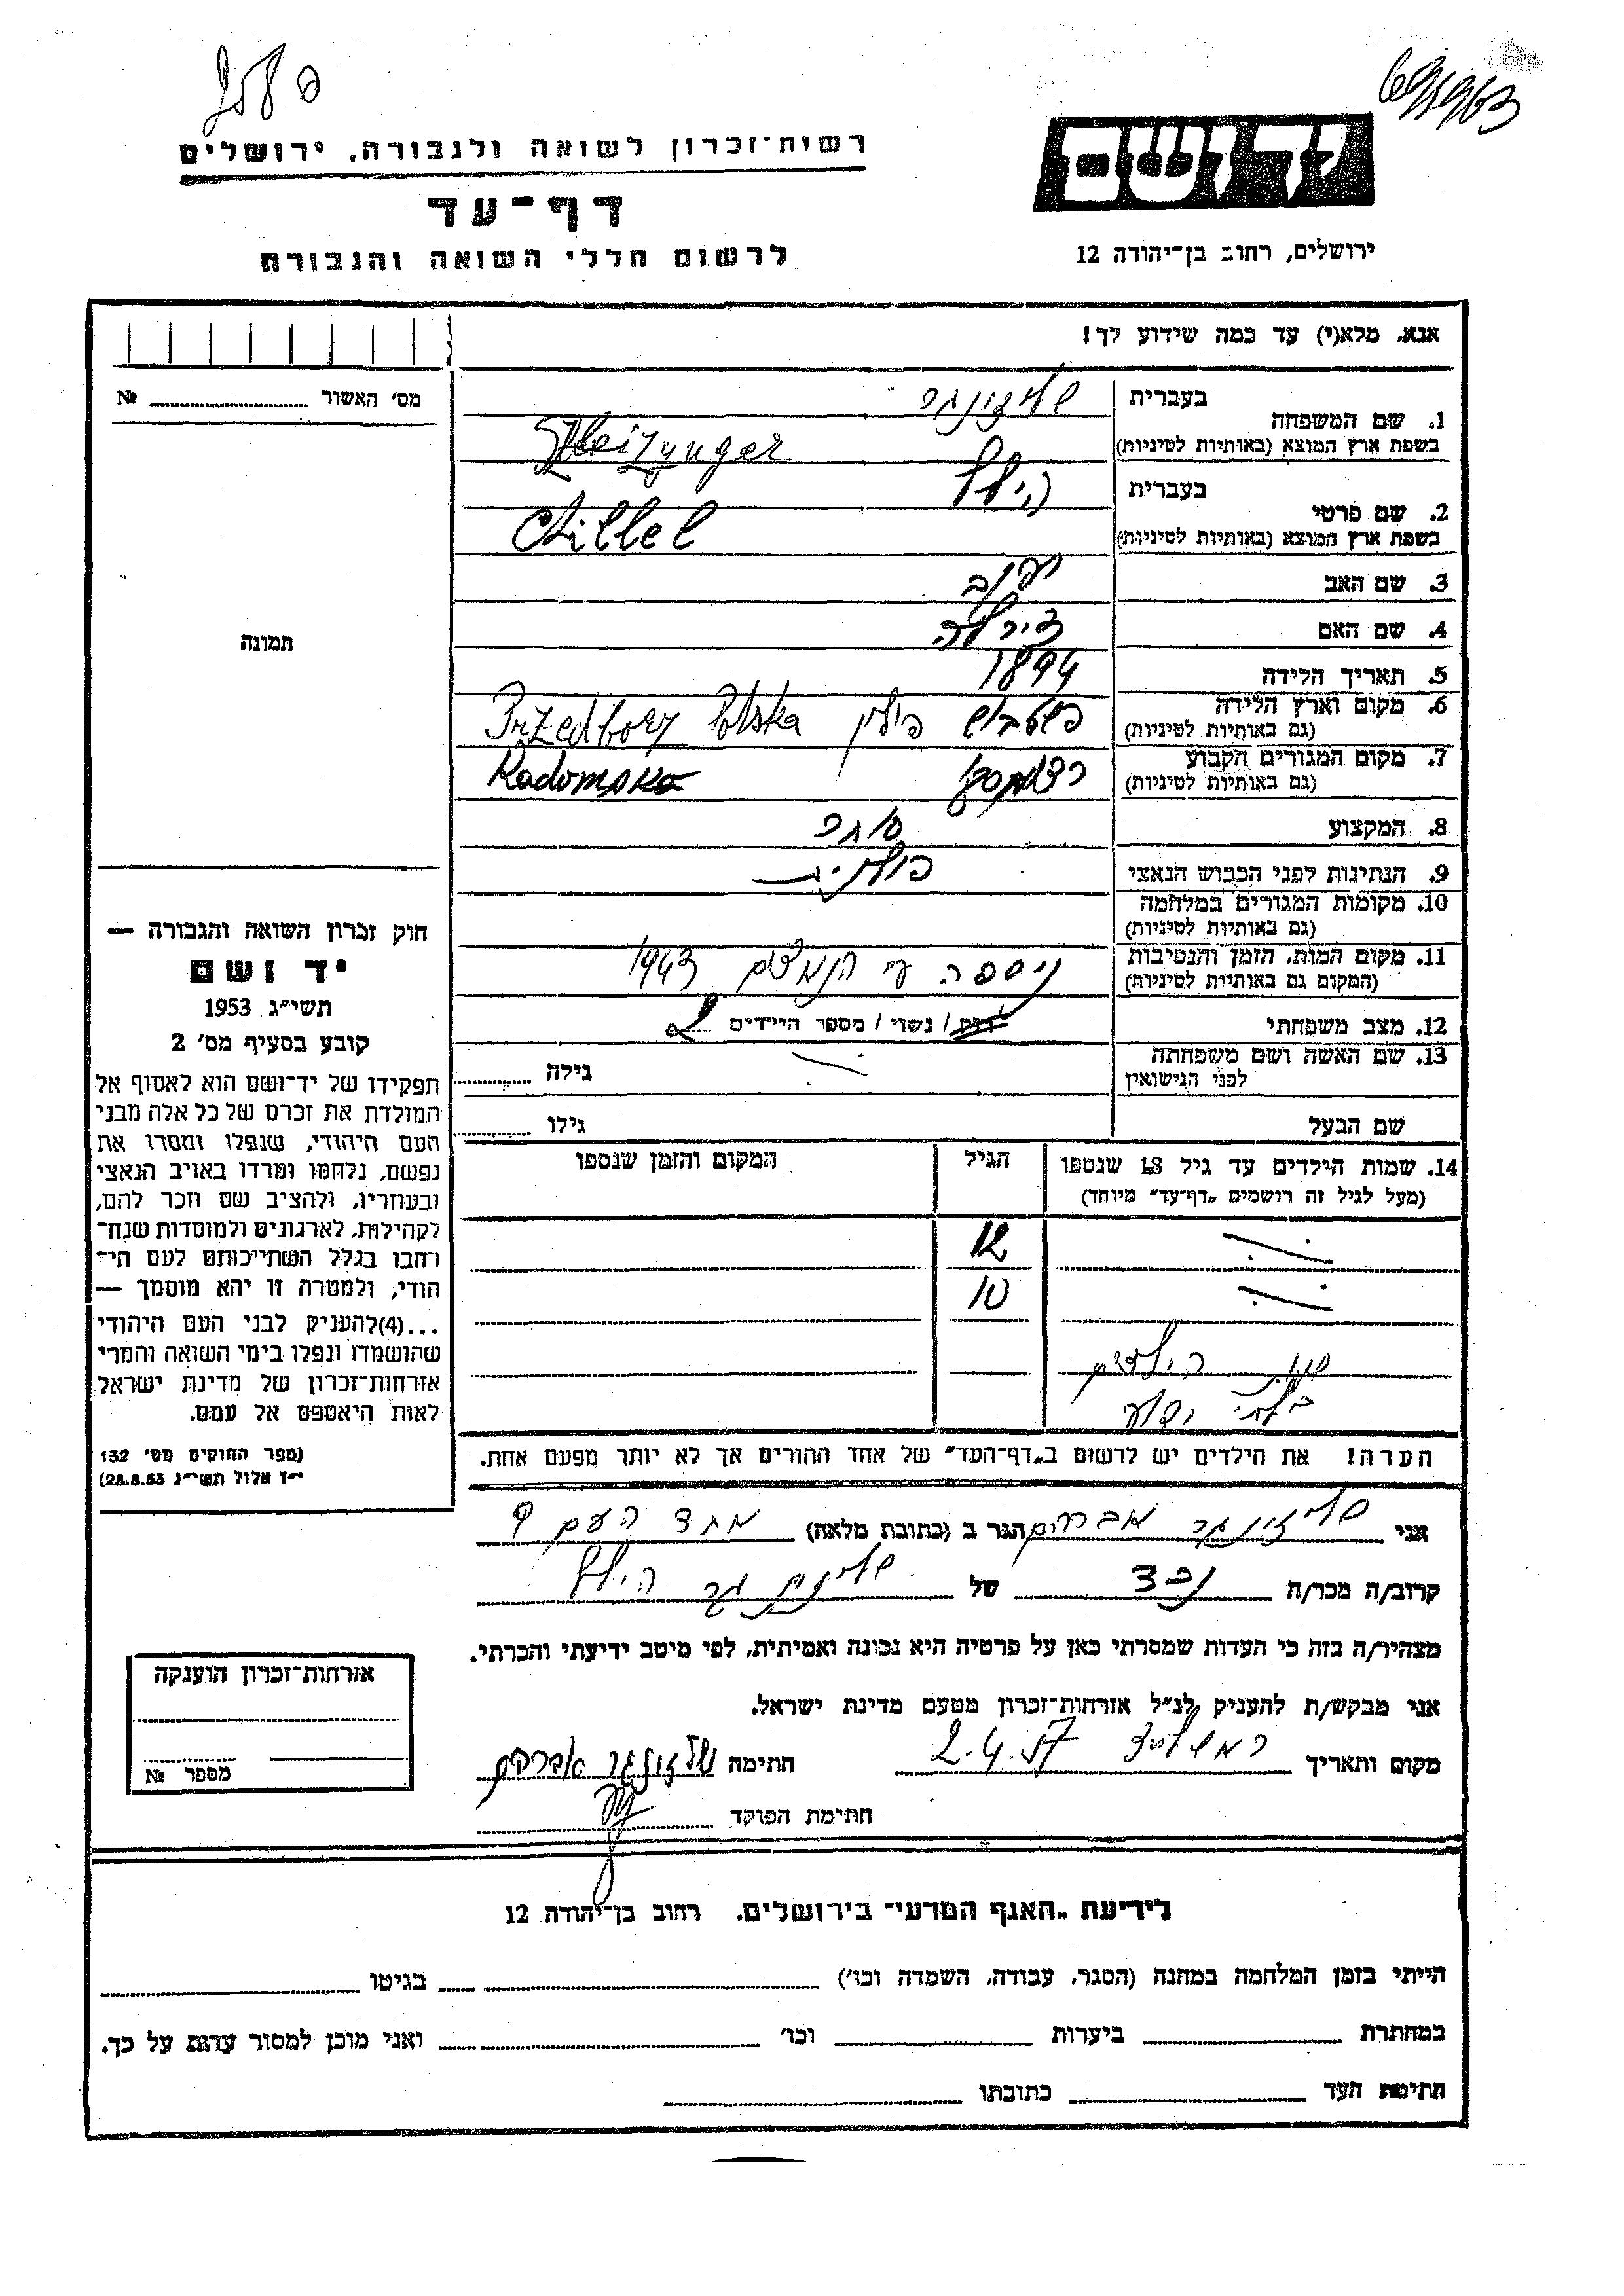 רשות־זכרון לשואה ולגבורה, ירושלים
דף־עד
לרשום חללי השואה והגבורה
יד ושם
ירושלים, רחוב בן־יהודה 12
אנא, מלא(י) עד כמה שידוע לך!
מס׳ האשור № 
תמונה
1. שם המשפחה בעברית
בשפת ארץ המוצא (באותיות לטיניות) Szleizynger
2. שם פרטי בעברית הילל
בשפת ארץ המוצא (באותיות לטיניות) Chillel
3. שם האב יעקב
4. שם האם צירלה
5. תאריך הלידה 1894
6. מקום וארץ הלידה (גם באותיות לטיניות) פולין Przedborz Polska
7. מקום המגורים הקבוע (גם באותיות לטיניות) Radomsko
8. המקצוע סוחר
9. הנתינות לפני הכבוש הנאצי פולנית
10. מקומות המגורים במלחמה (גם באותיות לטיניות)
11. מקום המות, הזמן והנסיבות (המקום גם באותיות לטיניות) ניספה ע״י הנאצים 1943
12. מצב משפחתי רוק / נשוי / מספר הילדים 2
13. שם האשה ושם משפחתה לפני הנישואין גילה
שם הבעל גילו
14. שמות הילדים עד גיל 18 שנספו הגיל המקום והזמן שנספו
(מעל לגיל זה רושמים „דף־עד״ מיוחד)
12
10
שמות הילדים
בלתי ידוע
הערה! את הילדים יש לרשום ב„דף־העד״ של אחד ההורים אך לא יותר מפעם אחת.
חוק זכרון השואה והגבורה —
יד ושם
תשי״ג 1953
קובע בסעיף מס׳ 2
תפקידו של יד־ושם הוא לאסוף אל
המולדת את זכרם של כל אלה מבני
העם היהודי, שנפלו ומסרו את
נפשם, נלחמו ומרדו באויב הנאצי
ובעוזריו, ולהציב שם וזכר להם,
לקהילות, לארגונים ולמוסדות שנח־
רבו בגלל השתייכותם לעם הי־
הודי, ולמטרה זו יהא מוסמך —
...(4)להעניק לבני העם היהודי
שהושמדו ונפלו בימי השואה והמרי
אזרחות־זכרון של מדינת ישראל
לאות היאספם אל עמם.
(ספר החוקים מס׳ 132
י״ז אלול תשי״ג 28.8.53)
אני שליזינגר אברהם הגר ב (כתובת מלאה) אחד העם 9
קרוב/ה מכר/ה נכד של שליזינגר הילל
מצהיר/ה בזה כי העדות שמסרתי כאן על פרטיה היא נכונה ואמיתית, לפי מיטב ידיעתי והכרתי.
אני מבקש/ת להעניק לנ״ל אזרחות־זכרון מטעם מדינת ישראל.
מקום ותאריך 2.4.57 חתימה שליזינגר אברהם
חתימת הפוקד
אזרחות־זכרון הוענקה
מספר №
לידיעת „האגף המדעי״ בירושלים, רחוב בן־יהודה 12
הייתי בזמן המלחמה במחנה (הסגר, עבודה, השמדה וכו׳) בגיטו
במחתרת ביערות וכו׳ ואני מוכן למסור עדות על כך.
חתימת העד כתובתו